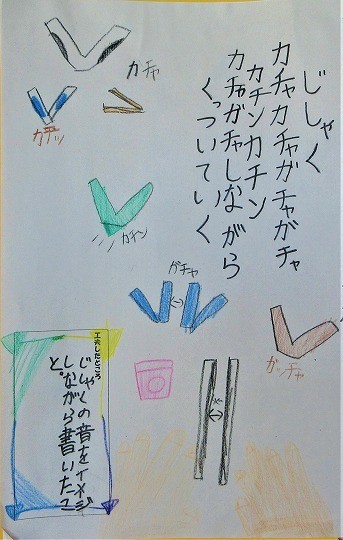 じしゃく
カチャカチャガチャガチャ
カチンカチン
カチャガチャしながら
くっついていく
カチャ
カチッ
カチン
ガチャ
ガッチャ
工夫したところ
じしゃくの音をイメージ
しながら書いたこ
と。